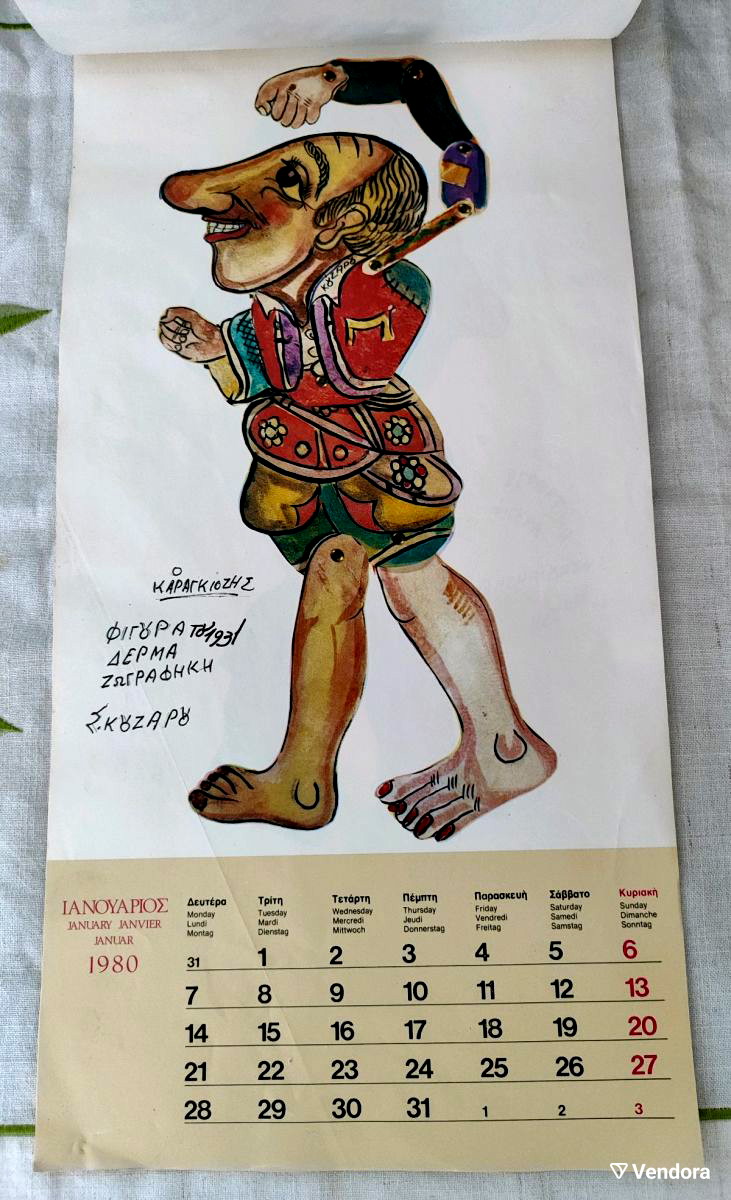 ΚȢΖΑΡΟ
Ο
ΚΑΡΑΓΚΙΟΖΗΣ
ΦΙΓȢΡΑ ΤȢ 1931
ΔΕΡΜΑ
ΖΩΓΡΑΦΗΚΗ
Σ. ΚȢΖΑΡȢ
ΙΑΝΟΥΑΡΙΟΣ
JANUARY JANVIER
JANUAR
1980
Δευτέρα Τρίτη Τετάρτη Πέμπτη Παρασκευή Σάββατο Κυριακή
Monday Tuesday Wednesday Thursday Friday Saturday Sunday
Lundi Mardi Mercredi Jeudi Vendredi Samedi Dimanche
Montag Dienstag Mittwoch Donnerstag Freitag Samstag Sonntag
31 1 2 3 4 5 6
7 8 9 10 11 12 13
14 15 16 17 18 19 20
21 22 23 24 25 26 27
28 29 30 31 1 2 3
Vendora